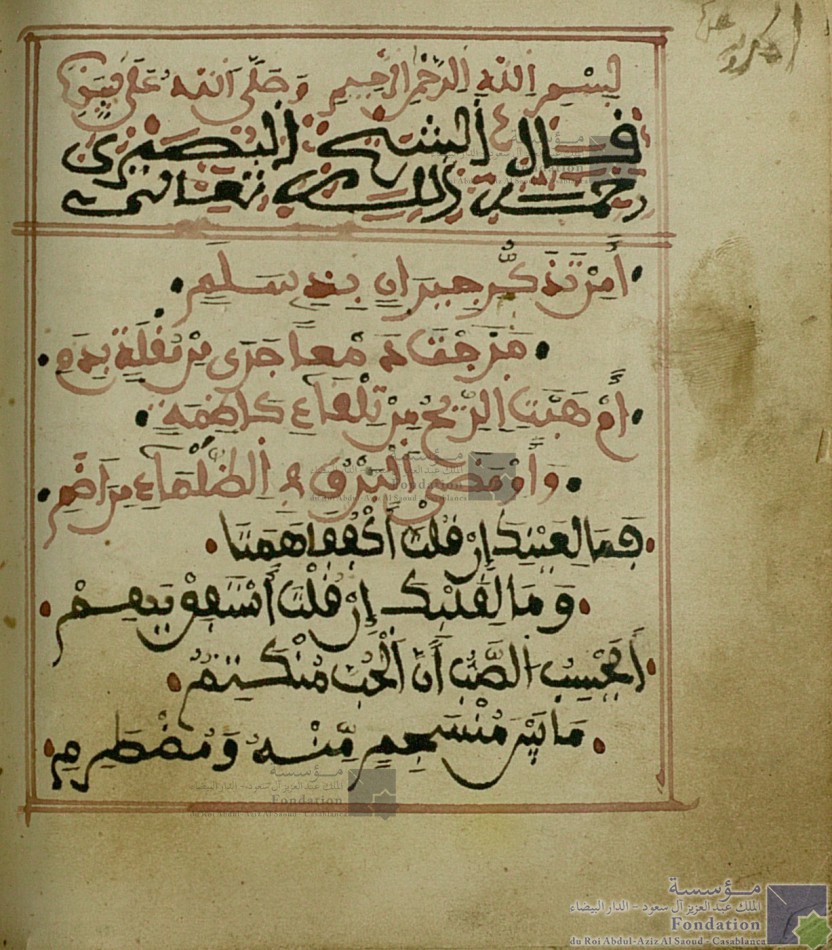 بسم الله الرحمن الرحيم وصلى الله على
قال الشيخ البصيري
رحمه الله تعالى
أَمِنْ تَذَكُّرِ جِيرَانٍ بِذِي سَلَمِ
مَزَجْتَ دَمْعًا جَرَى مِنْ مُقْلَةٍ بِدَمِ
أَمْ هَبَّتِ الرِّيحُ مِنْ تِلْقَاءِ كَاظِمَةٍ
وَأَوْمَضَ الْبَرْقُ فِي الظَّلْمَاءِ مِنْ إِضَمِ
فَمَا لِعَيْنَيْكَ إِنْ قُلْتَ اكْفُفَا هَمَتَا
وَمَا لِقَلْبِكَ إِنْ قُلْتَ اسْتَفِقْ يَهِمِ
أَيَحْسِبُ الصَّبُّ أَنَّ الْحُبَّ مُنْكَتِمٌ
مَا بَيْنَ مُنْسَجِمٍ مِّنْهُ وَمُضْطَرِمِ
مؤسسة
الملك عبد العزيز آل سعود - الدار البيضاء
Fondation
du Roi Abdul-Aziz Al Saoud - Casablanca